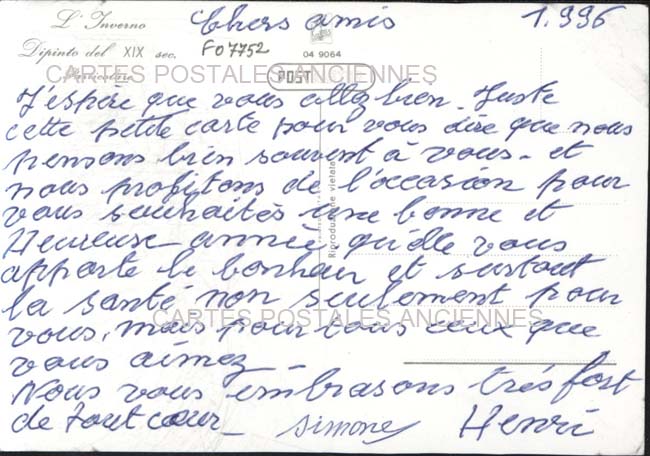 L'Inverno Chers amis 1.996
Dipinto del XIX sec. F07752 04 9064
Particolare
CARTES POSTALES ANCIENNES
POST
J'espère que vous allez bien. Juste
cette petite carte pour vous dire que nous
pensons bien souvent à vous - et
nous profitons de l'occasion pour
vous souhaités une bonne et
Heureuse année, qu'elle vous
apporte le bonheur et surtout
la santé non seulement pour
CARTES POSTALES ANCIENNES
vous, mais pour tous ceux que
vous aimez -
Nous vous embrasons très fort
de tout cœur - Simone Henri
Riproduzione vietata